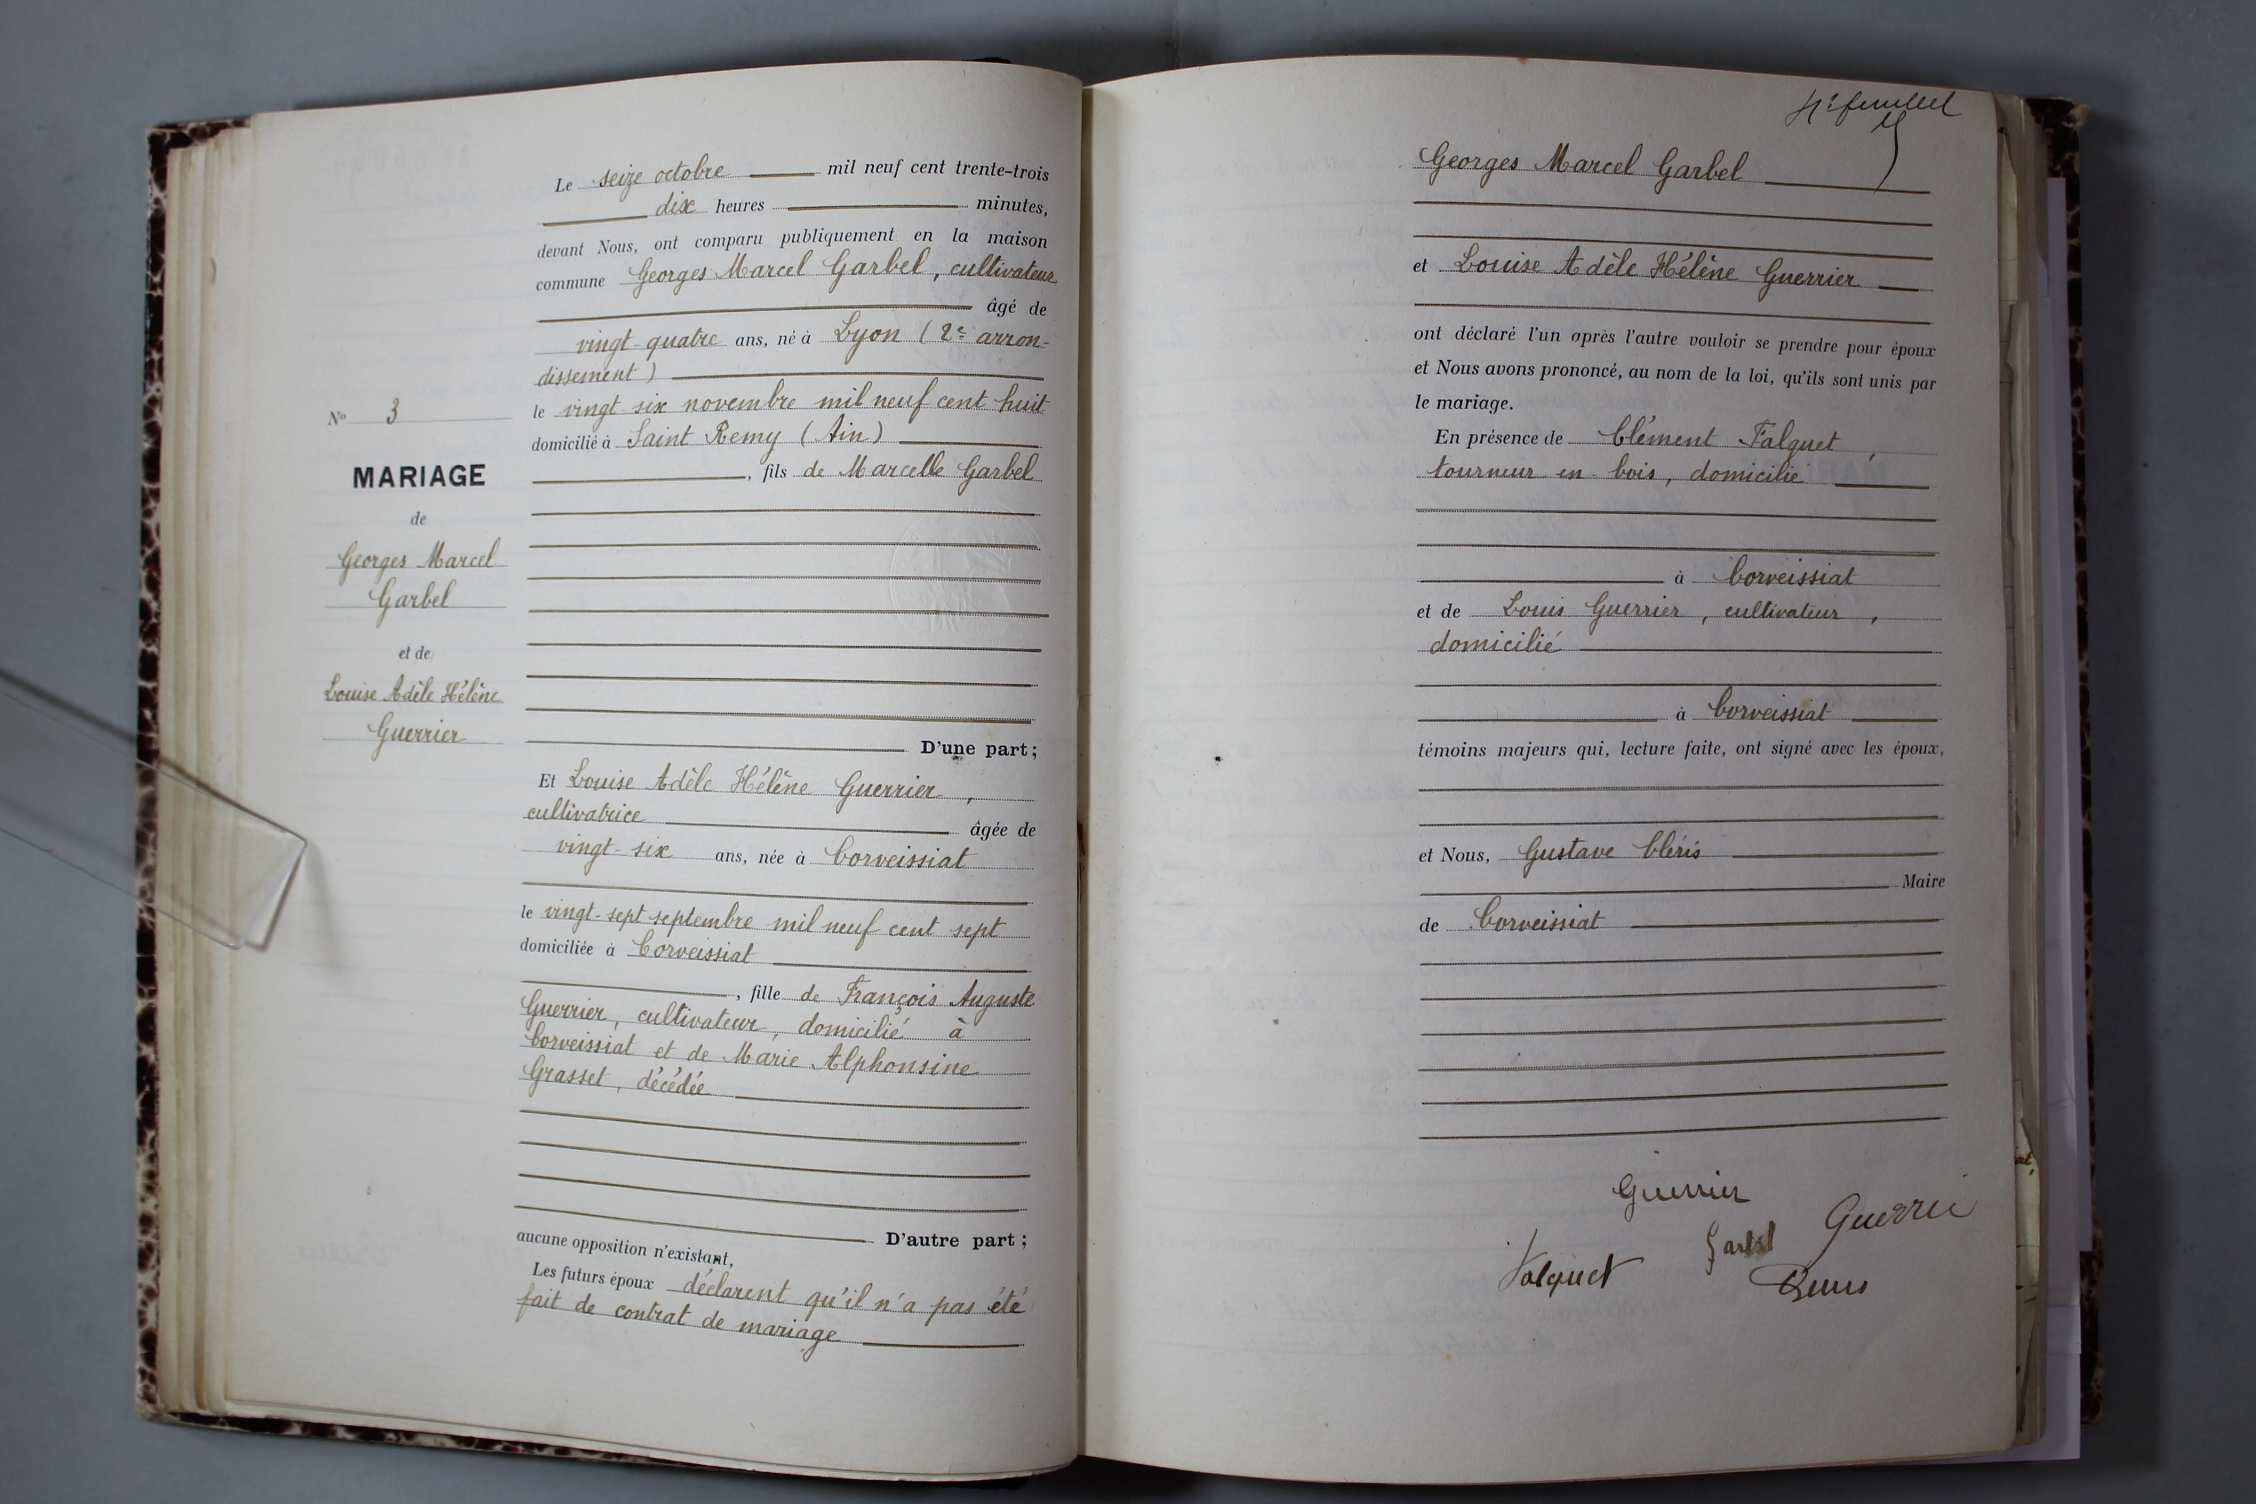 Le seize octobre mil neuf cent trente-trois
dix heures minutes,
devant Nous, ont comparu publiquement en la maison
commune Georges Marcel Garbel, cultivateur
âgé de
vingt-quatre ans, né à Lyon (2e arron-
dissement)
le vingt-six novembre mil neuf cent huit
domicilié à Saint Remy (Ain)
, fils de Marcelle Garbel
D'une part;
Et Louise Adèle Hélène Guerrier,
cultivatrice âgée de
vingt-six ans, née à Corveissiat
le vingt-sept septembre mil neuf cent sept
domiciliée à Corveissiat
, fille de François Auguste
Guerrier, cultivateur, domicilié à
Corveissiat et de Marie Alphonsine
Grasset, décédée
D'autre part;
aucune opposition n'existant,
Les futurs époux déclarent qu'il n'a pas été
fait de contrat de mariage
No 3
MARIAGE
de
Georges Marcel
Garbel
et de
Louise Adèle Hélène
Guerrier
Georges Marcel Garbel
et Louise Adèle Hélène Guerrier
ont déclaré l'un après l'autre vouloir se prendre pour époux
et Nous avons prononcé, au nom de la loi, qu'ils sont unis par
le mariage.
En présence de Clément Falquet,
tourneur en bois, domicilié
à Corveissiat
et de Louis Guerrier, cultivateur,
domicilié
à Corveissiat
témoins majeurs qui, lecture faite, ont signé avec les époux,
et Nous, Gustave Cléris
Maire
de Corveissiat
Guerrier
Guerrie
Garbel
Falquet